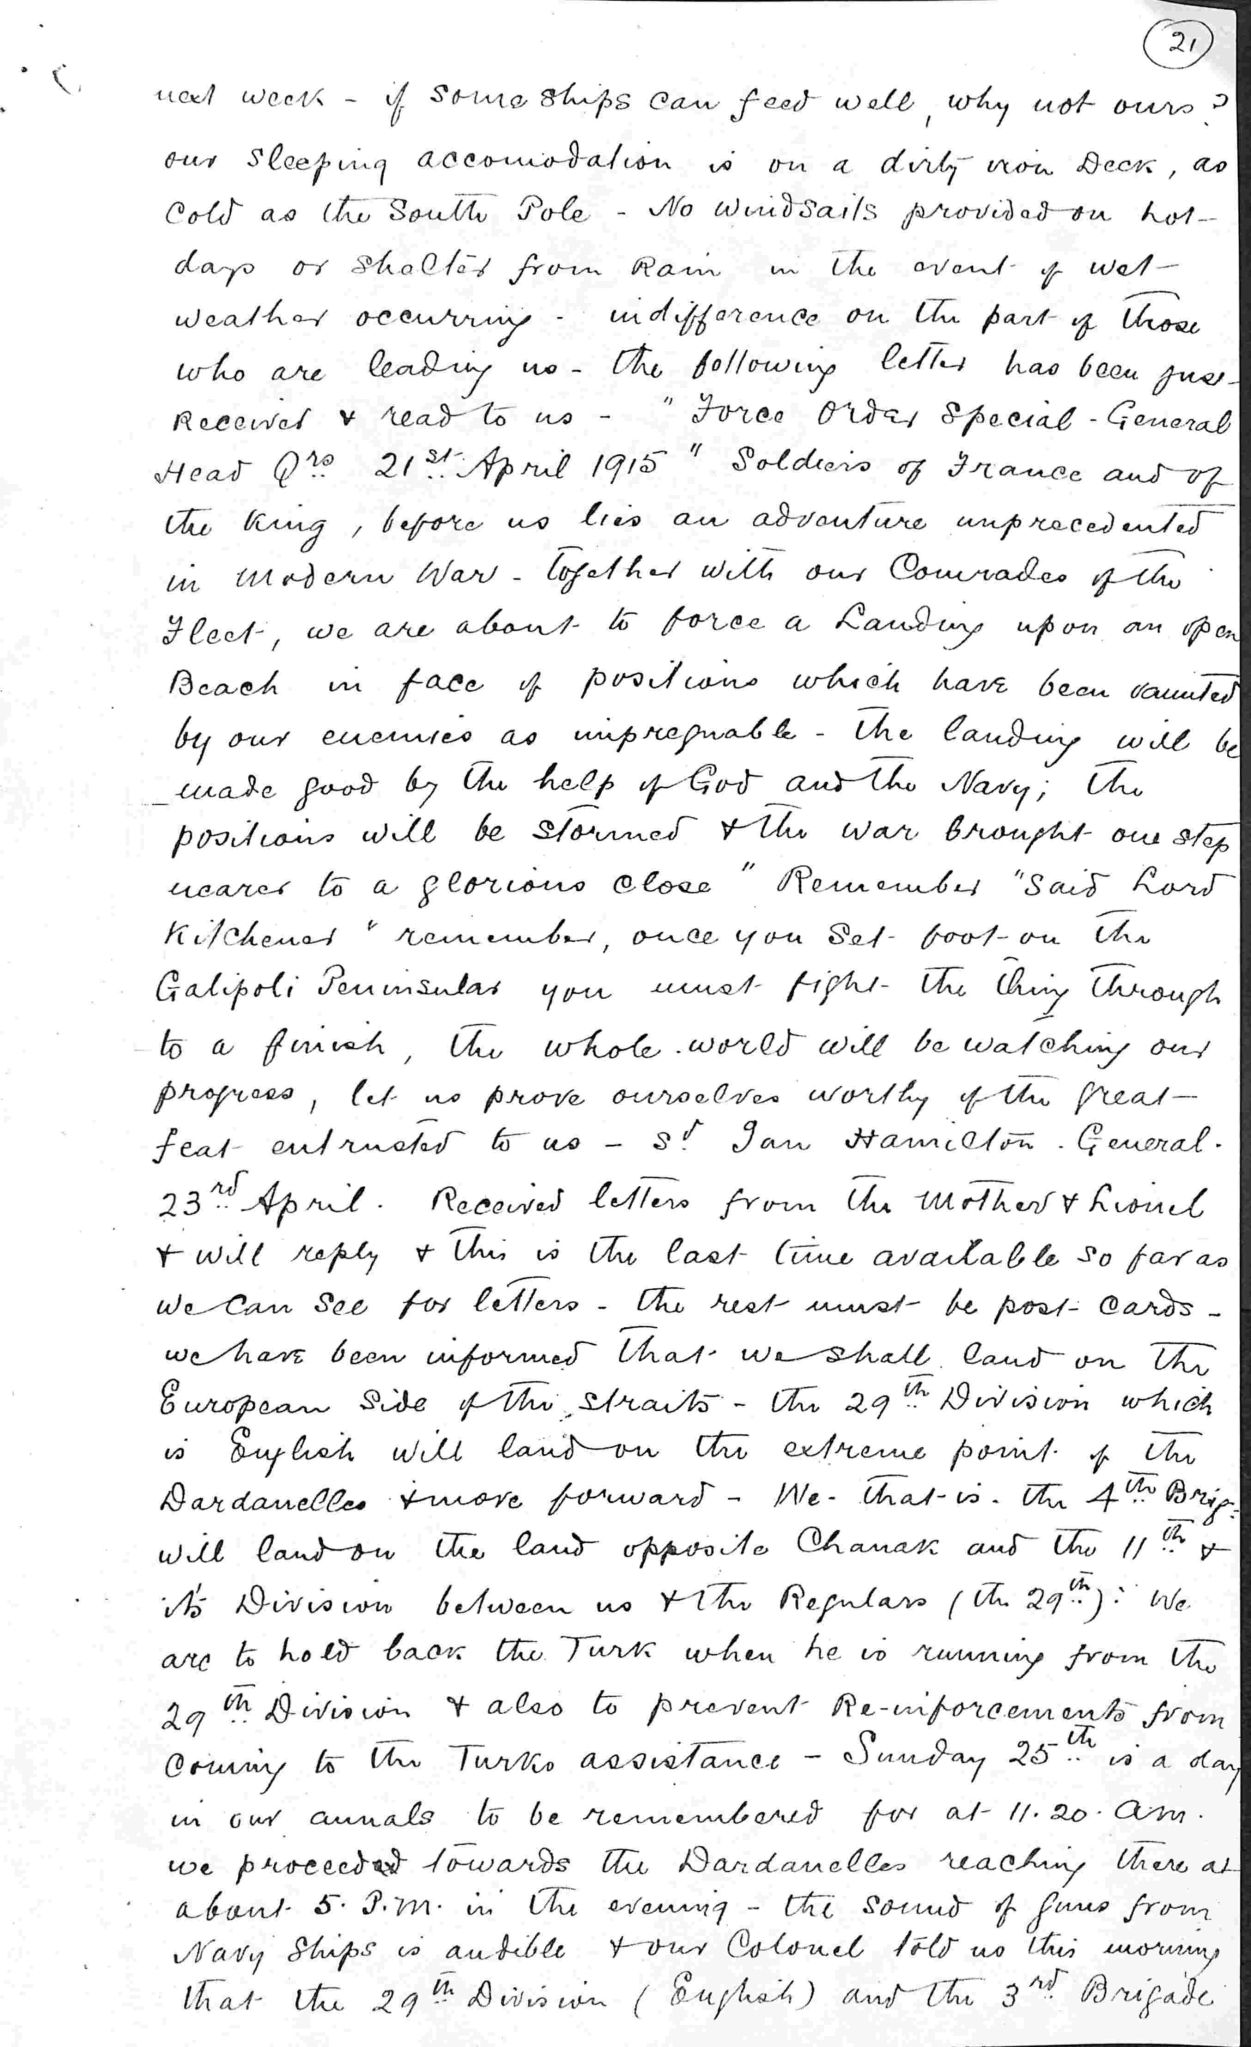 21
next week - if some ships can feed well, why not ours?
our sleeping accomodation is on a dirty iron Deck, as
cold as the South Pole - No windsails provided on hot
days or shelter from Rain in the event of wet
weather occurring - indifference on the part of those
who are leading us - the following letter has been just
Received & read to us - " Force Order Special - General
Head Qrs 21st April 1915 " Soldiers of France and of
the King, before us lies an adventure unprecedented
in Modern War - together with our Comrades of the
Fleet, we are about to force a Landing upon an open
Beach in face of positions which have been vaunted
by our enemies as impregnable - the landing will be
made good by the help of God and the Navy; the
positions will be stormed & the war brought one step
nearer to a glorious close " Remember "said Lord
Kitchener " remember, once you set foot on the
Galipoli Peninsular you must fight the thing through
to a finish, the whole world will be watching our
progress, let us prove ourselves worthy of the great
feat entrusted to us - Sd Ian Hamilton. General.
23rd April. Received letters from the Mother & Lionel
& will reply & this is the last time available so far as
we can see for letters - the rest must be post cards -
we have been informed that we shall land on the
European side of the straits - the 29th Division which
is English will land on the extreme point of the
Dardanelles & move forward - We - that is - the 4th Brig:
will land on the land opposite Chanak and the 11th &
it's Division between us & the Regulars (the 29th): We
are to hold back the Turk when he is running from the
29th Division & also to prevent Re-inforcements from
coming to the Turks assistance - Sunday 25th is a day
in our annals to be remembered for at 11.20. am.
we proceeded towards the Dardanelles reaching there at
about 5. P.m. in the evening - the sound of guns from
Navy Ships is audible & our Colonel told us this morning
that the 29th Division (English) and the 3rd Brigade